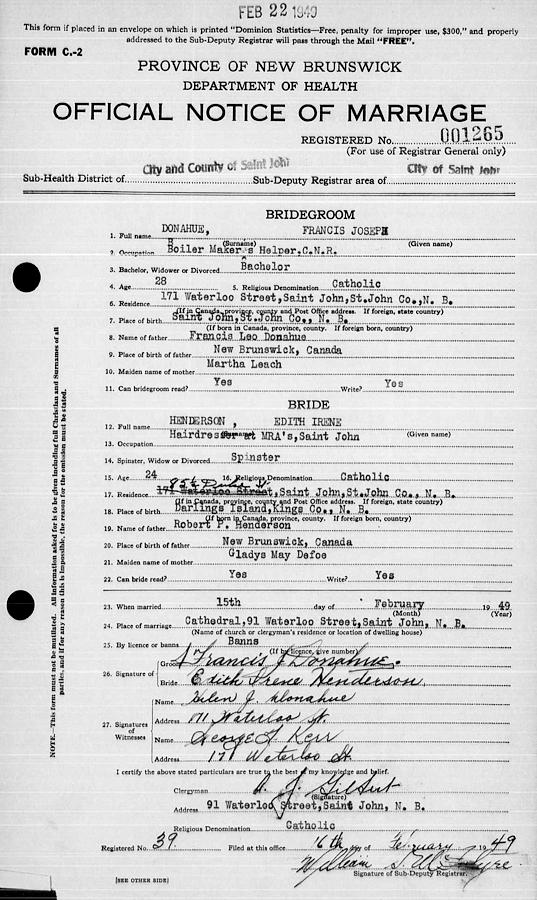 FEB 22 1949
This form if placed in an envelope on which is printed "Dominion Statistics—Free, penalty for improper use, $300," and properly
addressed to the Sub-Deputy Registrar will pass through the Mail "FREE".
FORM C.-2
PROVINCE OF NEW BRUNSWICK
DEPARTMENT OF HEALTH
OFFICIAL NOTICE OF MARRIAGE
REGISTERED No. 001265
(For use of Registrar General only)
Sub-Health District of City and County of Saint John Sub-Deputy Registrar area of City of Saint John
BRIDEGROOM
1. Full name DONAHUE, FRANCIS JOSEPH
(Surname) (Given name)
2. Occupation Boiler Maker's Helper, C.N.R.
3. Bachelor, Widower or Divorced Bachelor
4. Age 28 5. Religious Denomination Catholic
6. Residence 171 Waterloo Street, Saint John, St. John Co., N. B.
(If in Canada, province, county and Post Office address. If foreign, state country)
7. Place of birth Saint John, St. John Co., N. B.
(If born in Canada, province, county. If foreign born, country)
8. Name of father Francis Leo Donahue
9. Place of birth of father New Brunswick, Canada
10. Maiden name of mother Martha Leach
11. Can bridegroom read? Yes Write? Yes
BRIDE
12. Full name HENDERSON, EDITH IRENE
(Given name)
13. Occupation Hairdresser at MRA's, Saint John
14. Spinster, Widow or Divorced Spinster
15. Age 24 16. Religious Denomination Catholic
17. Residence 171 Waterloo Street, Saint John, St. John Co., N. B.
(If in Canada, province, county and Post Office address. If foreign, state country)
18. Place of birth Darlings Island, Kings Co., N. B.
(If born in Canada, province, county. If foreign born, country)
19. Name of father Robert P. Henderson
20. Place of birth of father New Brunswick, Canada
21. Maiden name of mother Gladys May Defoe
22. Can bride read? Yes Write? Yes
23. When married 15th day of February 1949
(Month) (Year)
24. Place of marriage Cathedral, 91 Waterloo Street, Saint John, N. B.
(Name of church or clergyman's residence or location of dwelling house)
25. By licence or banns Banns
(If by licence, give number)
26. Signature of Groom Francis J Donahue.
Bride Edith Irene Henderson
27. Signatures of Witnesses
Name Helen J. Donahue
Address 171 Waterloo St.
Name George L Kerr
Address 171 Waterloo St.
I certify the above stated particulars are true to the best of my knowledge and belief.
Clergyman A. J. Gilbert
(Signature)
Address 91 Waterloo Street, Saint John, N. B.
Religious Denomination Catholic
Registered No. 39 Filed at this office 16th day of February 1949
William
Signature of Sub-Deputy Registrar.
[SEE OTHER SIDE]
NOTE.—This form must not be mutilated. All information asked for is to be given including full Christian and Surnames of all
parties, and if for any reason this is impossible, the reason for the omission must be stated.